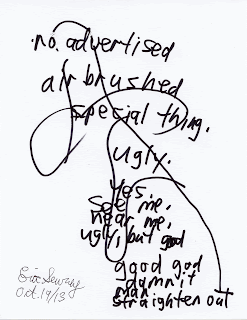 no advertised
air brushed
special thing.
ugly.
yes.
see me,
hear me,
ugly, but god
good god
damnit
man.
straighten out
Oct. 19/13